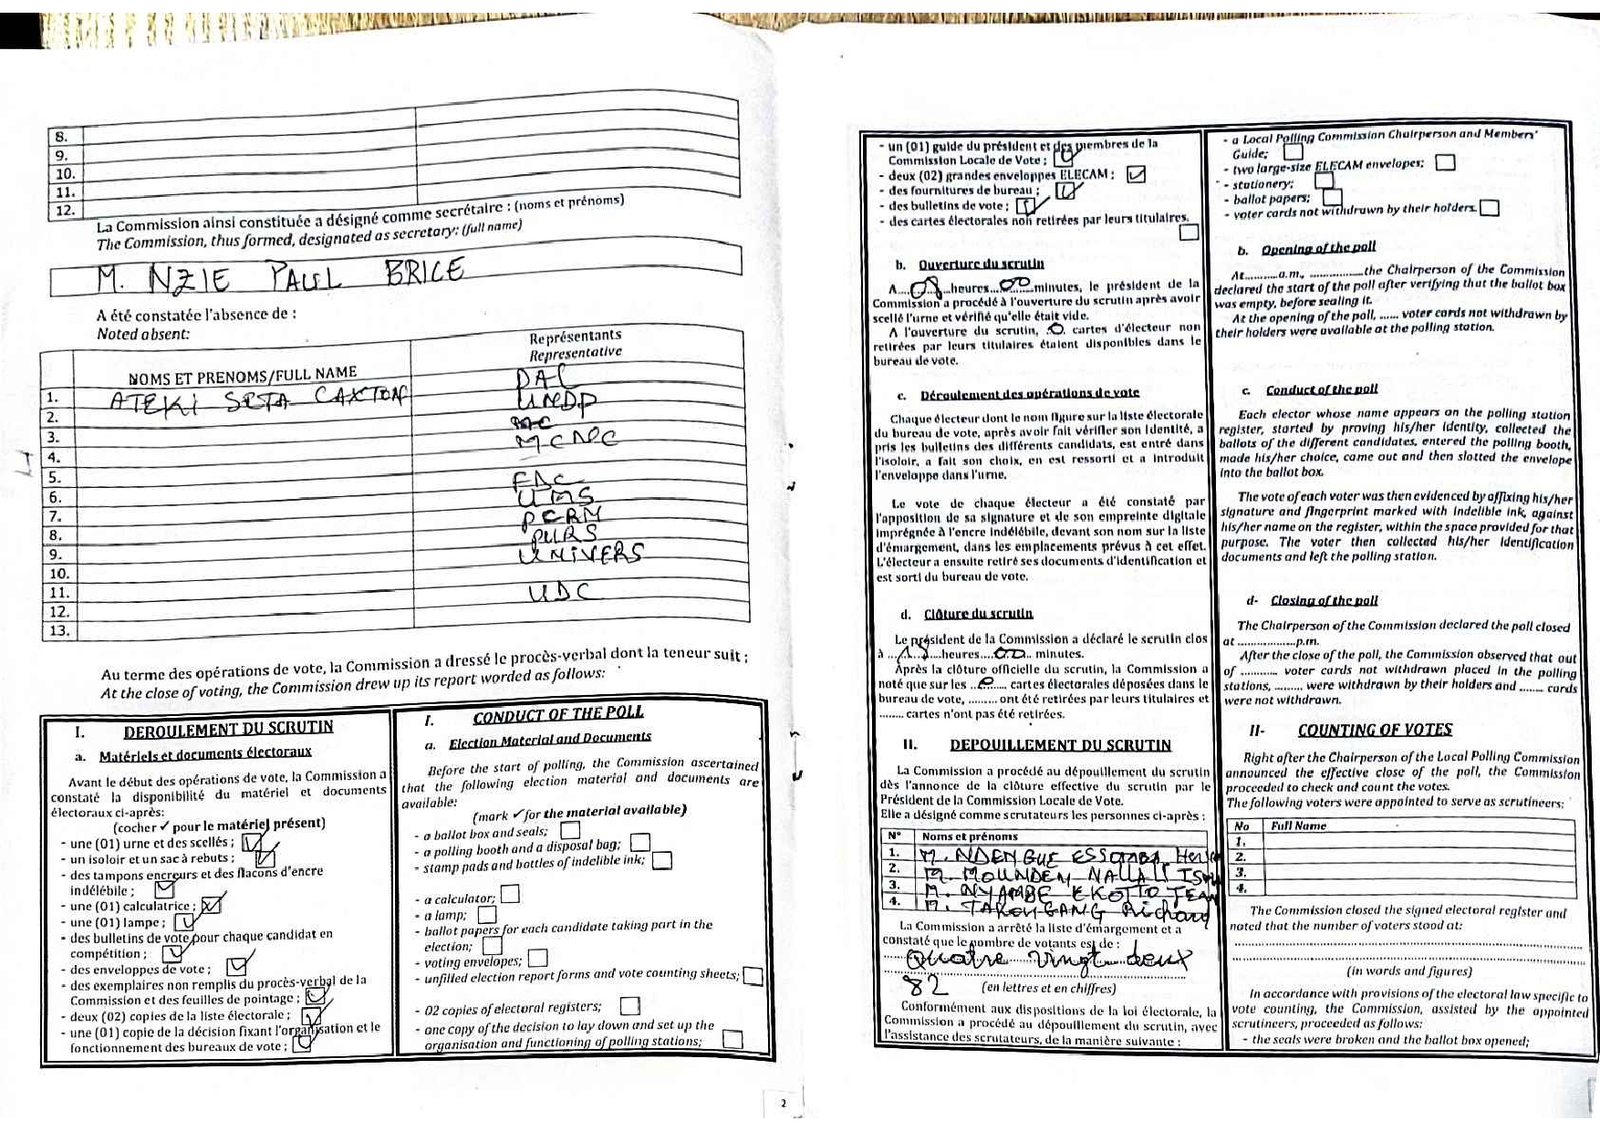 8.
9.
10.
11.
12.
La Commission ainsi constituée a désigné comme secrétaire : (noms et prénoms)
The Commission, thus formed, designated as secretary: (full name)
M. NZIE PAUL BRICE
A été constatée l'absence de :
Noted absent:
NOMS ET PRENOMS/FULL NAME
Représentants
Representative
1. ATEKI SETA CAXTON PAL
2. UNDP
3.
4. MCNC
5.
6. FDC
7. UMS
8. PCRN
9. PURS
10. UNIVERS
11.
12. UDC
13.
Au terme des opérations de vote, la Commission a dressé le procès-verbal dont la teneur suit :
At the close of voting, the Commission drew up its report worded as follows:
I. DEROULEMENT DU SCRUTIN
a. Matériels et documents électoraux
Avant le début des opérations de vote, la Commission a
constaté la disponibilité du matériel et documents
électoraux ci-après:
(cocher ✓ pour le matériel présent)
- une (01) urne et des scellés ;
- un isoloir et un sac à rebuts ;
- des tampons encreurs et des flacons d'encre
indélébile ;
- une (01) calculatrice ;
- une (01) lampe ;
- des bulletins de vote pour chaque candidat en
compétition ;
- des enveloppes de vote ;
- des exemplaires non remplis du procès-verbal de la
Commission et des feuilles de pointage ;
- deux (02) copies de la liste électorale ;
- une (01) copie de la décision fixant l'organisation et le
fonctionnement des bureaux de vote ;
I. CONDUCT OF THE POLL
a. Election Material and Documents
Before the start of polling, the Commission ascertained
that the following election material and documents are
available:
(mark ✓ for the material available)
- a ballot box and seals;
- a polling booth and a disposal bag;
- stamp pads and bottles of indelible ink;
- a calculator;
- a lamp;
- ballot papers for each candidate taking part in the
election;
- voting envelopes;
- unfilled election report forms and vote counting sheets;
- 02 copies of electoral registers;
- one copy of the decision to lay down and set up the
organisation and functioning of polling stations;
2
- un (01) guide du président et des membres de la
Commission Locale de Vote ;
- deux (02) grandes enveloppes ELECAM ;
- des fournitures de bureau ;
- des bulletins de vote ;
- des cartes électorales non retirées par leurs titulaires.
b. Ouverture du scrutin
A 08 heures 00 minutes, le président de la
Commission a procédé à l'ouverture du scrutin après avoir
scellé l'urne et vérifié qu'elle était vide.
A l'ouverture du scrutin, 0 cartes d'électeur non
retirées par leurs titulaires étaient disponibles dans le
bureau de vote.
c. Déroulement des opérations de vote
Chaque électeur dont le nom figure sur la liste électorale
du bureau de vote, après avoir fait vérifier son identité, a
pris les bulletins des différents candidats, est entré dans
l'isoloir, a fait son choix, en est ressorti et a introduit
l'enveloppe dans l'urne.
Le vote de chaque électeur a été constaté par
l'apposition de sa signature et de son empreinte digitale
imprégnée à l'encre indélébile, devant son nom sur la liste
d'émargement, dans les emplacements prévus à cet effet.
L'électeur a ensuite retiré ses documents d'identification et
est sorti du bureau de vote.
d. Clôture du scrutin
Le président de la Commission a déclaré le scrutin clos
à ........ heures 00 minutes.
Après la clôture officielle du scrutin, la Commission a
noté que sur les 0 cartes électorales déposées dans le
bureau de vote, ......... ont été retirées par leurs titulaires et
........ cartes n'ont pas été retirées.
II. DEPOUILLEMENT DU SCRUTIN
La Commission a procédé au dépouillement du scrutin
dès l'annonce de la clôture effective du scrutin par le
Président de la Commission Locale de Vote.
Elle a désigné comme scrutateurs les personnes ci-après :
N° Noms et prénoms
1. M. NDENGUE ESSOMBA
2. M. MOUNDEN
3. M. NYAMBE EKOTTO JEAN
4. M. TAKOUGANG Richard
La Commission a arrêté la liste d'émargement et a
constaté que le nombre de votants est de :
Quatre vingt deux
82 (en lettres et en chiffres)
Conformément aux dispositions de la loi électorale, la
Commission a procédé au dépouillement du scrutin, avec
l'assistance des scrutateurs, de la manière suivante :
- a Local Polling Commission Chairperson and Members'
Guide;
- two large-size ELECAM envelopes;
- stationery;
- ballot papers;
- voter cards not withdrawn by their holders.
b. Opening of the poll
At...........a.m., ...............the Chairperson of the Commission
declared the start of the poll after verifying that the ballot box
was empty, before sealing it.
At the opening of the poll, ...... voter cards not withdrawn by
their holders were available at the polling station.
c. Conduct of the poll
Each elector whose name appears on the polling station
register, started by proving his/her identity, collected the
ballots of the different candidates, entered the polling booth,
made his/her choice, came out and then slotted the envelope
into the ballot box.
The vote of each voter was then evidenced by affixing his/her
signature and fingerprint marked with indelible ink, against
his/her name on the register, within the space provided for that
purpose. The voter then collected his/her identification
documents and left the polling station.
d- Closing of the poll
The Chairperson of the Commission declared the poll closed
at ...................p.m.
After the close of the poll, the Commission observed that out
of ........... voter cards not withdrawn placed in the polling
stations, ......... were withdrawn by their holders and ........ cards
were not withdrawn.
II- COUNTING OF VOTES
Right after the Chairperson of the Local Polling Commission
announced the effective close of the poll, the Commission
proceeded to check and count the votes.
The following voters were appointed to serve as scrutineers:
No Full Name
1.
2.
3.
4.
The Commission closed the signed electoral register and
noted that the number of voters stood at:
(in words and figures)
In accordance with provisions of the electoral law specific to
vote counting, the Commission, assisted by the appointed
scrutineers, proceeded as follows:
- the seals were broken and the ballot box opened;